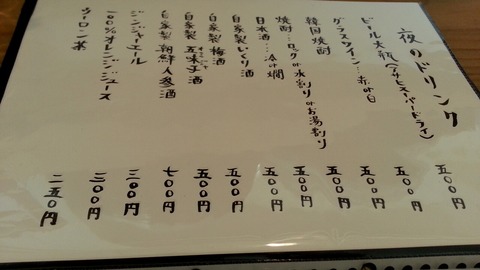 夜のドリンク
ビール大瓶(アサヒスーパードライ) 五〇〇円
グラスワイン…赤or白 五〇〇円
韓国焼酎 五〇〇円
焼酎…ロックor水割りorお湯割り 五〇〇円
日本酒…冷or燗 五〇〇円
自家製いくり酒 五〇〇円
自家製梅酒 五〇〇円
自家製五味子酒 五〇〇円
自家製朝鮮人参酒 七〇〇円
ジンジャーエール 三〇〇円
100%オレンジジュース 三〇〇円
ウーロン茶 二五〇円